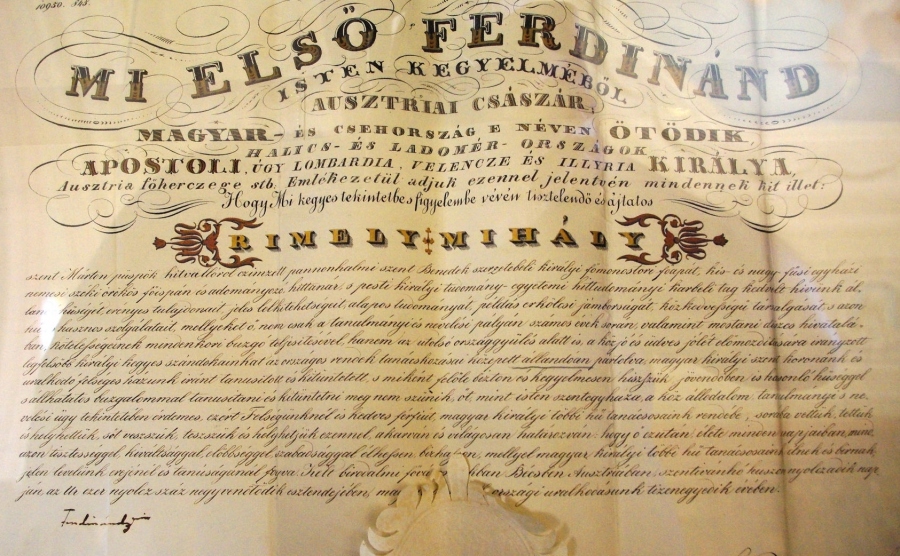 10950. 845.
MI ELSŐ FERDINÁND
ISTEN KEGYELMÉBŐL
AUSZTRIAI CSÁSZÁR,
MAGYAR- ÉS CSEHORSZÁG E NÉVEN ÖTÖDIK,
HALICS- ÉS LADOMÉR- ORSZÁGOK
APOSTOLI, ÚGY LOMBARDIA, VELENCZE ÉS ILLYRIA KIRÁLYA,
Ausztria főherczege stb. Emlékezetül adjuk ezennel jelentvén mindennek kit illet:
Hogy Mi kegyes tekintetbe s figyelembe vévén tisztelendő és ájtatos
RIMELY MIHÁLY
szent Márton püspök hitvallóról czimzett pannonhalmi szent Benedek szerzetebeli királyi főmonostori főapát, kis- és nagy-füsi egyházi
nemesi széki örökös főispán és a pesti királyi tudomány-egyetemi hittudományi karbeli tag kedvelt hívünk
hűségét, erényes tulajdonait, jeles lelkitehetségeit, alapos tudományát, példás erkölcsi jámborságát, közkedvességű társalgását, s azon
hű s hasznos szolgálatait, mellyeket ő, nem csak a tanulmányi és nevelési pályán számos évek során, valamint mostani díszes hivatalá-
ban kötelességeinek mindenkori buzgó teljesítésével, hanem az utolsó országgyűlés alatt is, a köz jó és üdves jólét előmozdítására irányzott
legfelsőbb királyi kegyes szándokainkat az országos rendek tanácskozásai közepett állandóan pártolva, magyar királyi szent koronánk és
uralkodó felséges házunk iránt tanusított és kitüntetett, s miként felőle bízton és kegyelmesen hisszük jövendőben is hasonló hűséggel
s állhatatos buzgalommal tanusítani és kitüntetni meg nem szűnik, őt, mint isten szentegyháza, a köz álladalom, tanulmányi s ne-
velési ügy tekintetében érdemes, ezért Felségünknél is kedves férfiút magyar királyi többi hű tanácsosaink rendébe, sorába vettük, tettük
és helyheztük, sőt vesszük, tesszük és helyheztjük ezennel, akarván és világosan határozván: hogy ő ezután élete minden napjaiban, mind
azon tisztességgel, kiváltsággal, elsőbbséggel, szabadsággal élhessen, mellyel magyar királyi többi hű tanácsosaink élnek és
jelen levelünk erejénél és tanúságánál fogva. Kelt birodalmi Bécsben Ausztriában, szentivánhó huszonnyolczadik nap-
ján az Úr ezer nyolcz száz negyvenötödik esztendejében, országi uralkodásunk tizenegyedik évében.
Ferdinand